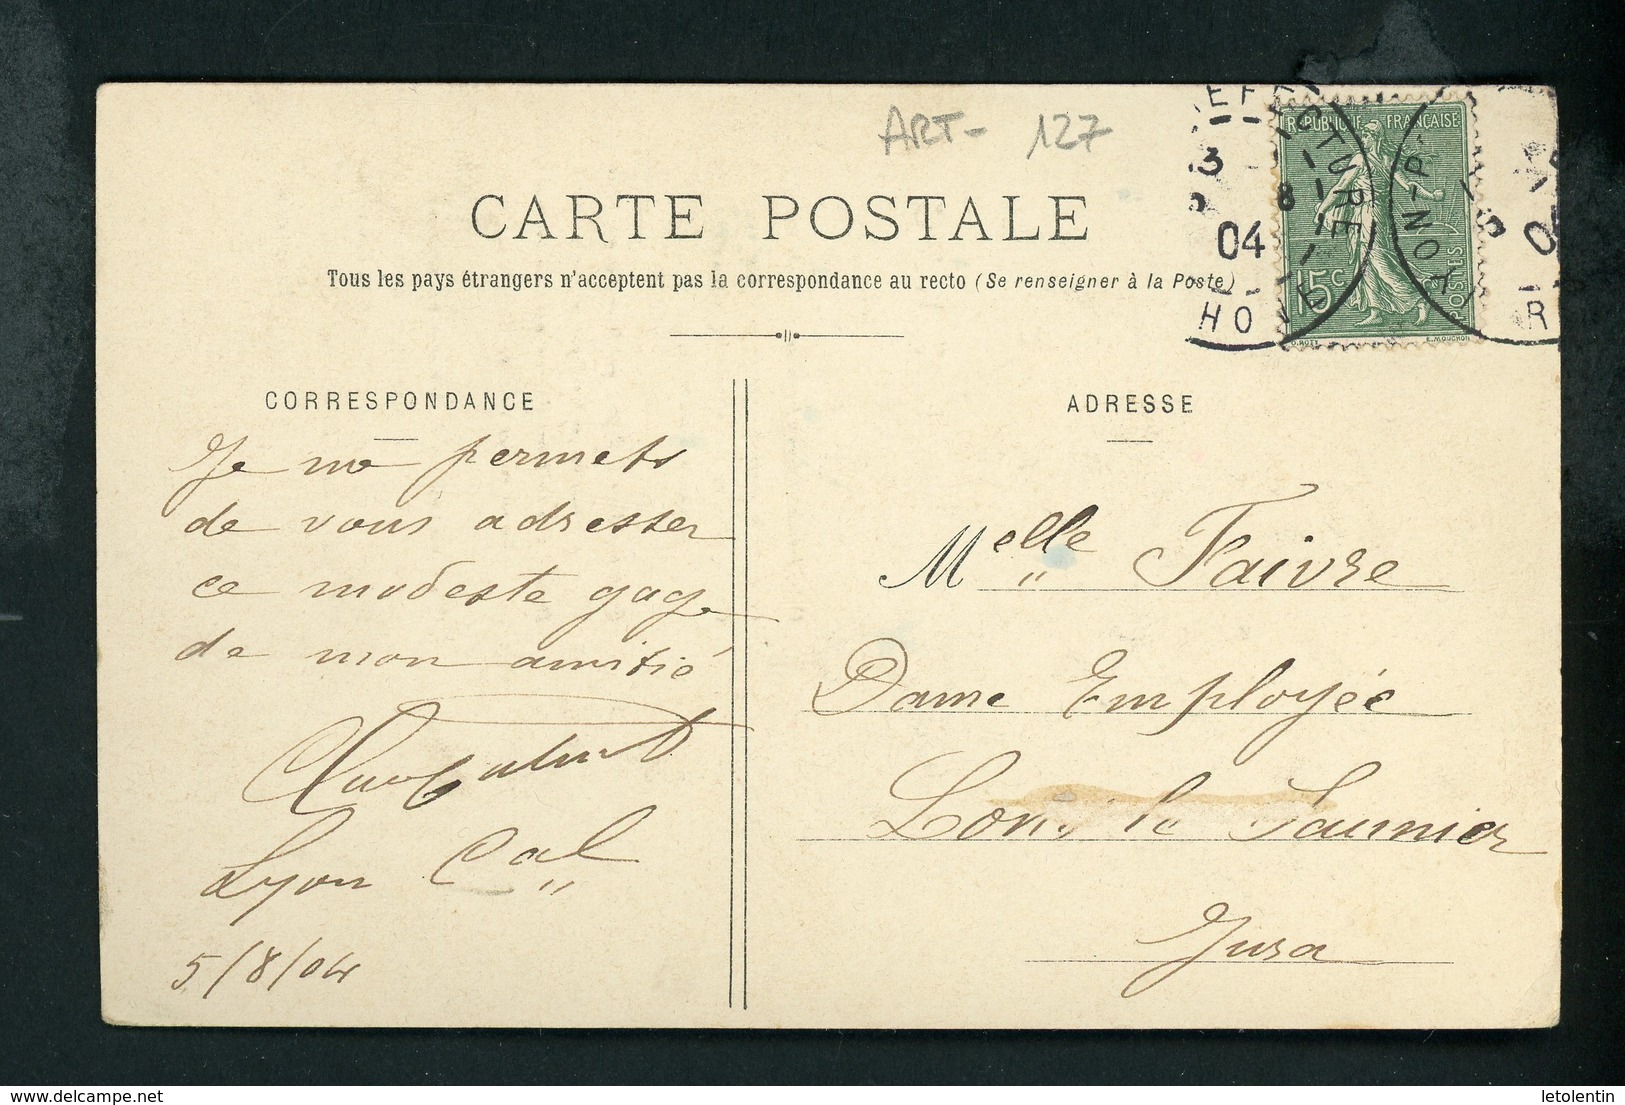 ART- 127
CARTE POSTALE
Tous les pays étrangers n'acceptent pas la correspondance au recto (Se renseigner à la Poste)
REPUBLIQUE FRANÇAISE
15c
POSTES
O. ROTY
E. MOUCHON
LYON-P
04
RHO
CORRESPONDANCE
Je me permets
de vous adresser
ce modeste gage
de mon amitié
Lyon Cal
5/8/04
ADRESSE
Melle Faivre
Dame Employée
Lons le Saunier
Jura
delcampe.net
letolentin